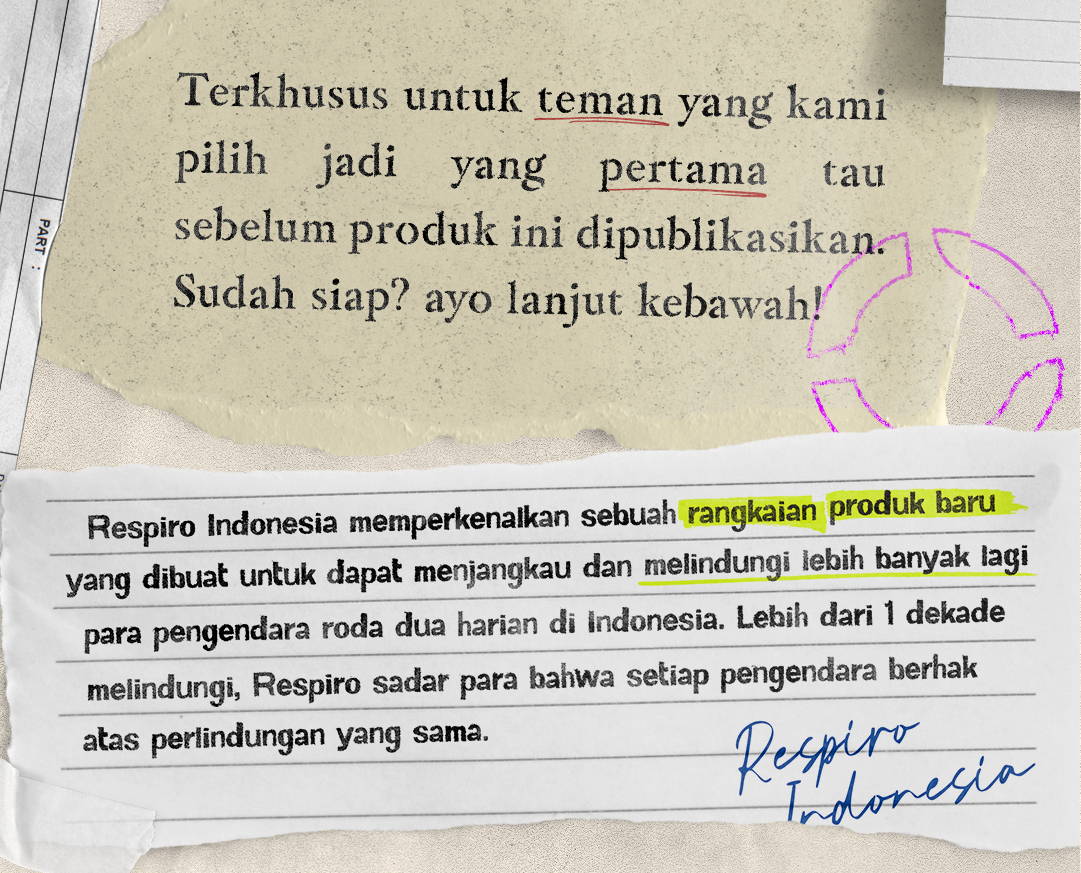 Terkhusus untuk teman yang kami
pilih jadi yang pertama tau
sebelum produk ini dipublikasikan.
Sudah siap? ayo lanjut kebawah!
PART :
Respiro Indonesia memperkenalkan sebuah rangkaian produk baru
yang dibuat untuk dapat menjangkau dan melindungi lebih banyak lagi
para pengendara roda dua harian di Indonesia. Lebih dari 1 dekade
melindungi, Respiro sadar para bahwa setiap pengendara berhak
atas perlindungan yang sama.
Respiro
Indonesia